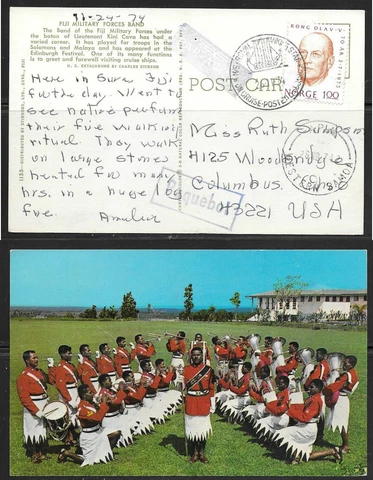 11-24-74
FIJI MILITARY FORCES BAND
The Band of the Fiji Military Forces under the
baton of Lieutenant Kini Cava has had a
varied career. It has played for troops in the
Solomons and Malaya and has appeared at the
Edinburgh Festival. One of its many functions
is to greet and farewell visiting cruise ships.
EKTACHROME BY CHARLES STINSON
Here in Suva, Fiji
for the day. Went to
see native perform
their fire walking
ritual. They walk
on large stones
heated for many
hrs. in a huge log
fire.
POST CARD
KONG OLAV V
NORGE 100
Miss Ruth Sampson
4125 Woodbridge
Columbus,
43221 USA
Paquebot
WESTERN SAMOA